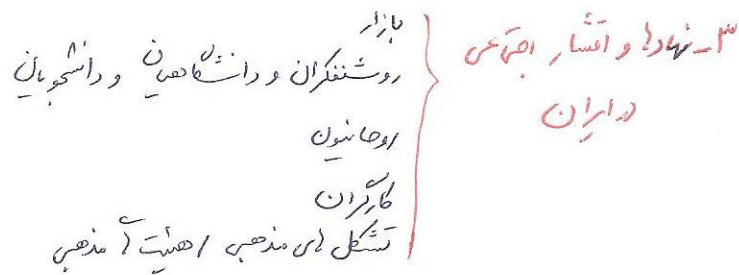 ۳ـ نهادها و اقشار اجتماعی
در ایران
بازار
روشنفکران و دانشگاهیان و دانشجویان
روحانیون
کارگران
تشکل های مذهبی / هیئت های مذهبی